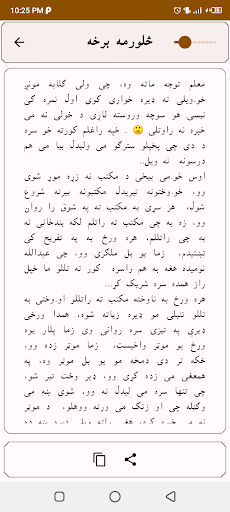 10:25 PM
څلورمه برخه
معلم توجه ماته وه، چي ولی ګلابه مونږ
خو.ویلی ته ډیره خواری کوی اول نمره کی
نیسی هو سوچه وروسته لاړی د خولی نه می
خبره نه راوتلی 🙁 . خپه راغلم کورته خو سره
د دی چی پخپلو سترګو می ولیدل بیا می هم
درسونه نه ویل..
اوس خو.می بیخی د مکتب نه زړه موړ شوی
وو، خو.وختونه تیریدل مکتبونه بیرته شروع
شول، هر سړی به مکتب ته په شوق را روان
وو، زه به چی مکتب ته راتلم لکه بندخانی ته
به چی راتللم، هره ورځ به په تفریح کی
تښتیدم، زما یو بل ملګری وو، چی عبدالله
نومیده هغه به هم راسره کور ته تللو ما خپل
راز همده سره شریک کړ...
هره ورځ به ناوخته مکتب ته راتللو او.وختی به
تللو تنبلی مو ډیره زیاته شوه، همدا ورځی
ډیری په تیزی سره روانی وی زما پلار یوه
ورځ یو موټر واخیست، زما موټر زده وو،
ځکه تر دی دمخه مو یو بل موټر وه، په
همغی می زده کړی وو، ډیر وخت تیر شو،
چی تنها سره می لیدل نه وو، شوی ښه می
وګڼله چی او زنګ می ورته ووهلو، د موټر